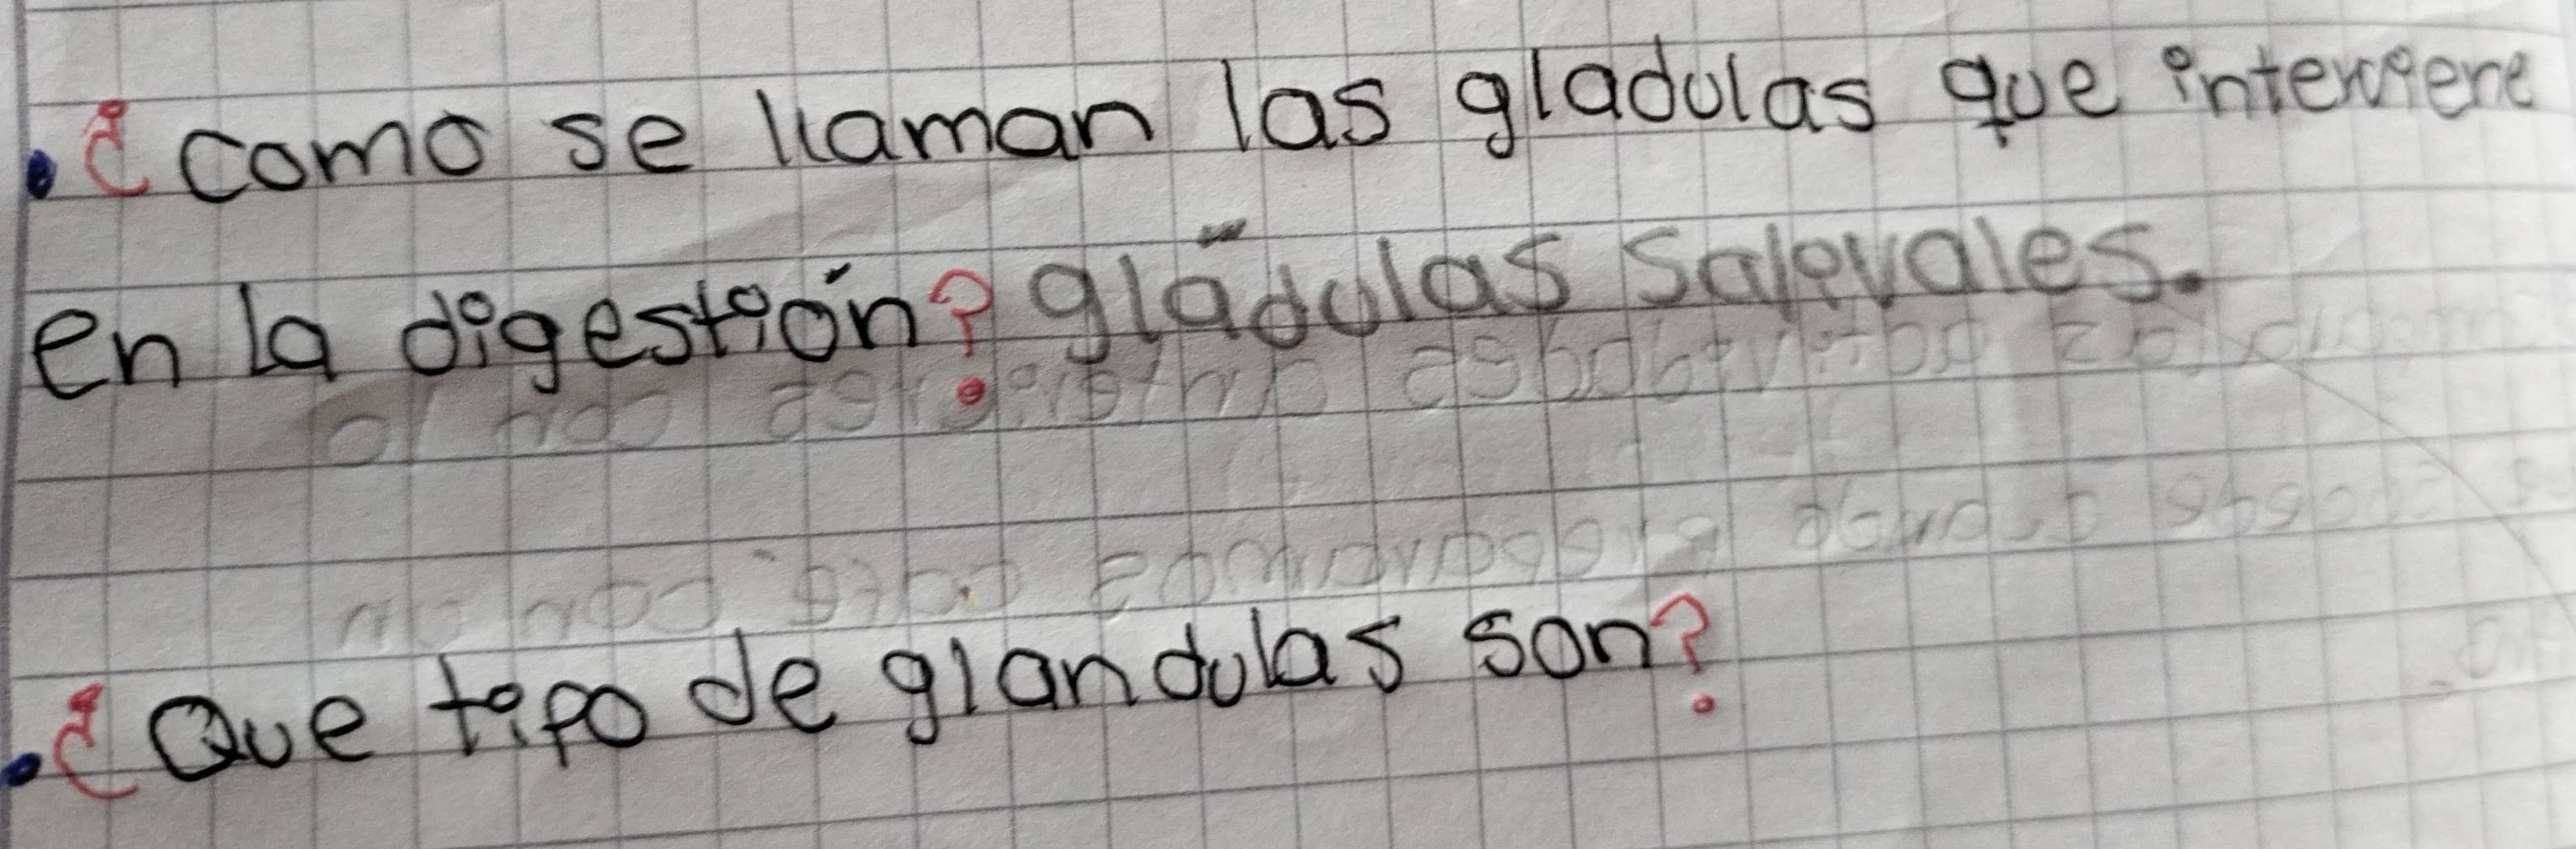 • ¿ como se llaman las gladulas que interviene
en la digestión? gládulas salivales.
• ¿ Que tipo de glandulas son?